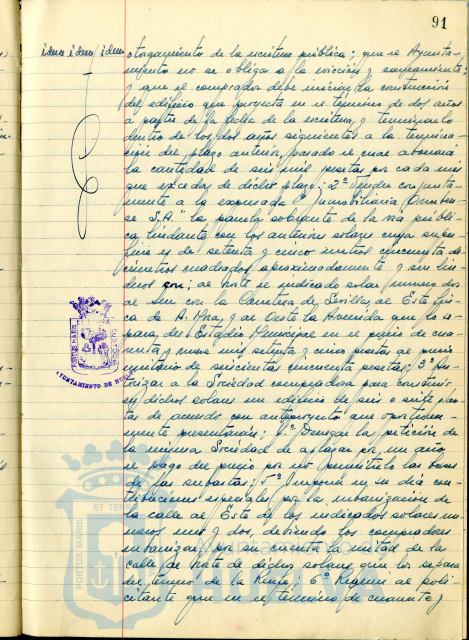 91
idem idem idem
otorgamiento de la escritura pública; que el Ayunta-
miento no se obliga a la evicción y saneamiento;
y que el comprador debe iniciar la construcción
del edificio que proyecta en el término de dos años
a partir de la fecha de la escritura, y terminarlo
dentro de los dos años siguientes a la termina-
ción del plazo anterior, pasado el cual abonará
la cantidad de seis mil pesetas por cada mes
que exceda de dicho plazo; 2º Vender conjunta-
mente a la expresada "Inmobiliaria Onuben-
se S.A." la parcela sobrante de la vía públi-
ca, lindante con los anteriores solares cuya super-
ficie es de setenta y cinco metros cincuenta de-
címetros cuadrados aproximadamente y sus lin-
deros son; al Norte el indicado solar numero dos
al Sur con la Carretera de Sevilla, al Este finca
de A. Mora, y al Oeste la Avenida que lo se-
para del Estadio Municipal en el precio de cua-
renta y nueve mil setenta y cinco pesetas al precio
unitario de seiscientas cincuenta pesetas; 3º Au-
torizar a la Sociedad compradora para construir
en dichos solares un edificio de seis o siete plan-
tas de acuerdo con anteproyecto que oportuna-
mente presentarán; 4º Denegar la petición de
la misma Sociedad de aplazar por un año,
el pago del precio por no permitirlo las bases
de las subastas; 5º Imponer en su día con-
tribuciones especiales por la urbanización de
la calle al Este de los indicados solares nu-
meros uno y dos, debiendo los compradores
urbanizar por su cuenta la mitad de la
calle al Norte de dichos solares que los separa
del terreno de la Renfe; 6º Requerir al soli-
citante que en el término de cuarenta y
PORTUS MARIS
CUSTODIA
AYUNTAMIENTO DE HUELVA
PORTUS MARIS
ET TERRAE